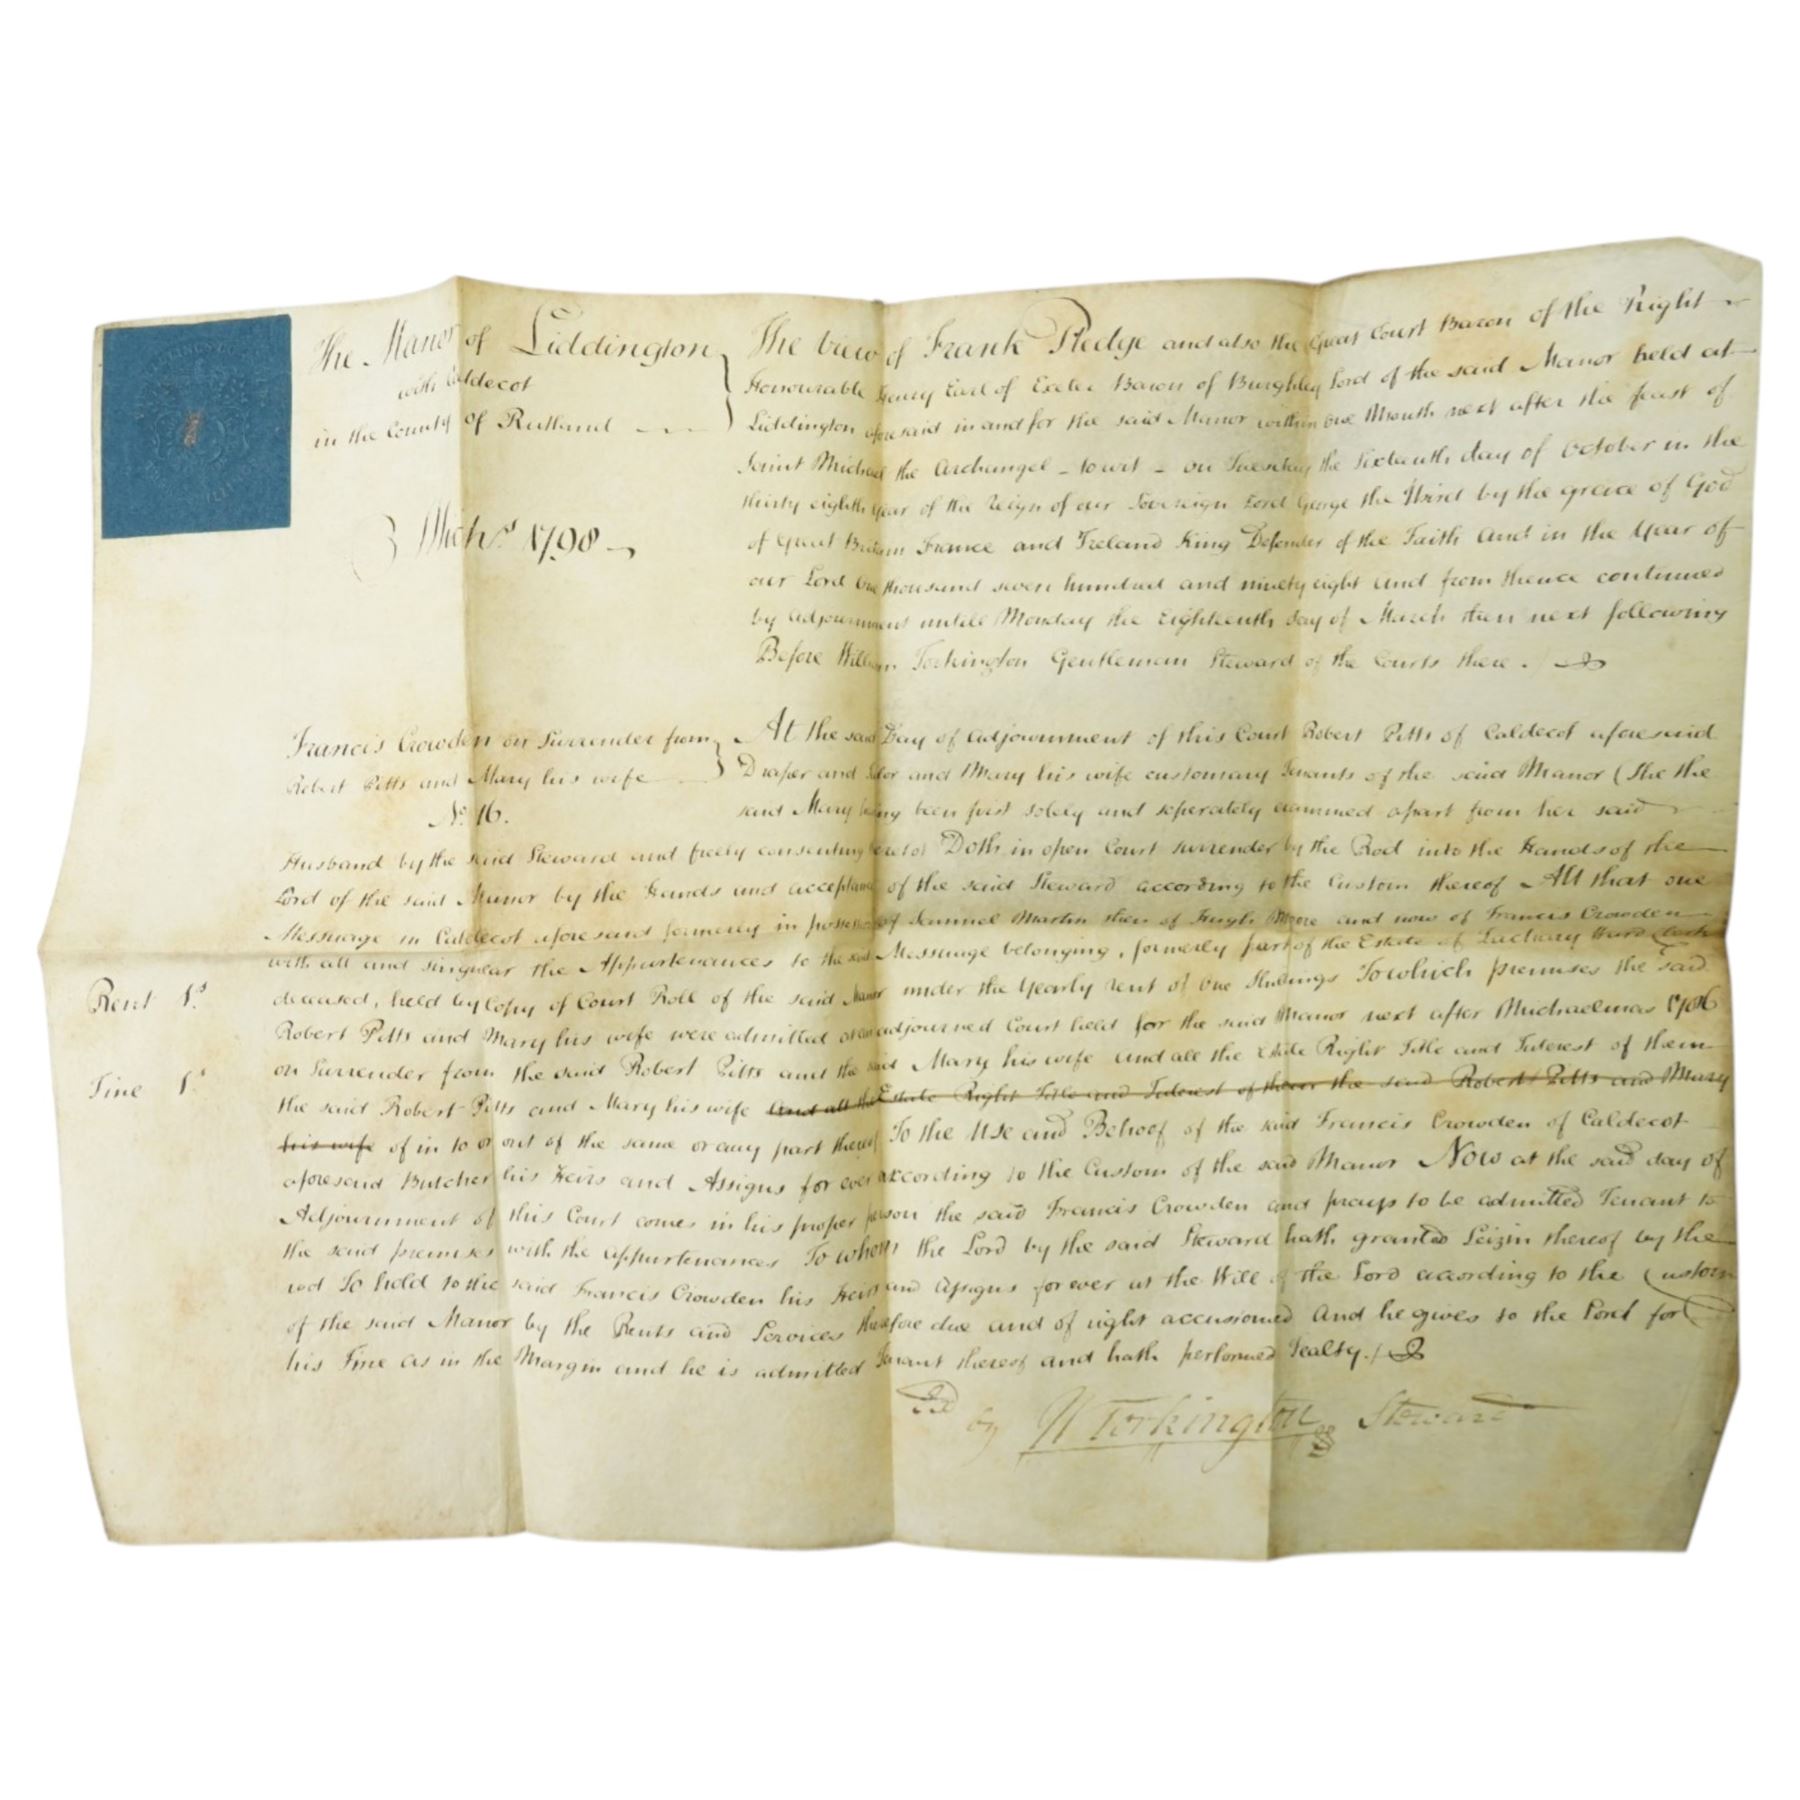 The Manor of Liddington
with Caldecot
in the County of Rutland
Michs 1798
The view of Frank Pledge and also the Great Court Baron of the Right
Honourable Henry Earl of Exeter Baron of Burghley Lord of the said Manor held at
Liddington aforesaid in and for the said Manor within One Month next after the feast of
Saint Michael the Archangel - to wit - on Tuesday the Sixteenth day of October in the
thirty eighth Year of the Reign of our Sovereign Lord George the Third by the grace of God
of Great Britain France and Ireland King Defender of the Faith And in the Year of
our Lord One thousand seven hundred and ninety eight And from thence continued
by Adjournment untill Monday the Eighteenth day of March then next following
Before William Torkington Gentleman Steward of the Courts there.
Francis Crowden on Surrender from
Robert Pitts and Mary his wife
No. 16.
At the said Day of Adjournment of this Court Robert Pitts of Caldecot aforesaid
Draper and and Mary his wife customary Tenants of the said Manor (She the
said Mary having been first solely and seperately examined apart from her said
Husband by the said Steward and freely consenting hereto) Doth in open Court surrender by the Rod into the Hands of the
Lord of the said Manor by the Hands and acceptance of the said Steward according to the Custom thereof All that one
Messuage in Caldecot aforesaid formerly in possession of Samuel Martin then of Hugh Moore and now of Francis Crowden
with all and singular the Appurtenances to the said Messuage belonging, formerly part of the Estate of Zachary Ward Clerk
deceased, held by Copy of Court Roll of the said Manor under the Yearly rent of One Shillings To which premises the said
Robert Pitts and Mary his wife were admitted at an adjourned Court held for the said Manor next after Michaelmas
on Surrender from the said Robert Pitts and the said Mary his wife And all the Estate Right Title and Interest of them
the said Robert Pitts and Mary his wife And all the Estate Right Title and Interest of them the said Robert Pitts and Mary
his wife of in to or out of the same or any part thereof To the Use and Behoof of the said Francis Crowden of Caldecot
aforesaid Butcher his Heirs and Assigns for ever according to the Custom of the said Manor Now at the said day of
Adjournment of this Court comes in his proper person the said Francis Crowden and prays to be admitted Tenant to
the said premises with the Appurtenances To whom the Lord by the said Steward hath granted Seizin thereof by the
rod To hold to the said Francis Crowden his Heirs and Assigns for ever at the Will of the Lord according to the Custom
of the said Manor by the Rents and Services therefore due and of right accustomed And he gives to the Lord for
his Fine as in the Margin and he is admitted Tenant thereof and hath performed Fealty.
Rent 1.s
Fine 1.s
by W Torkington Steward